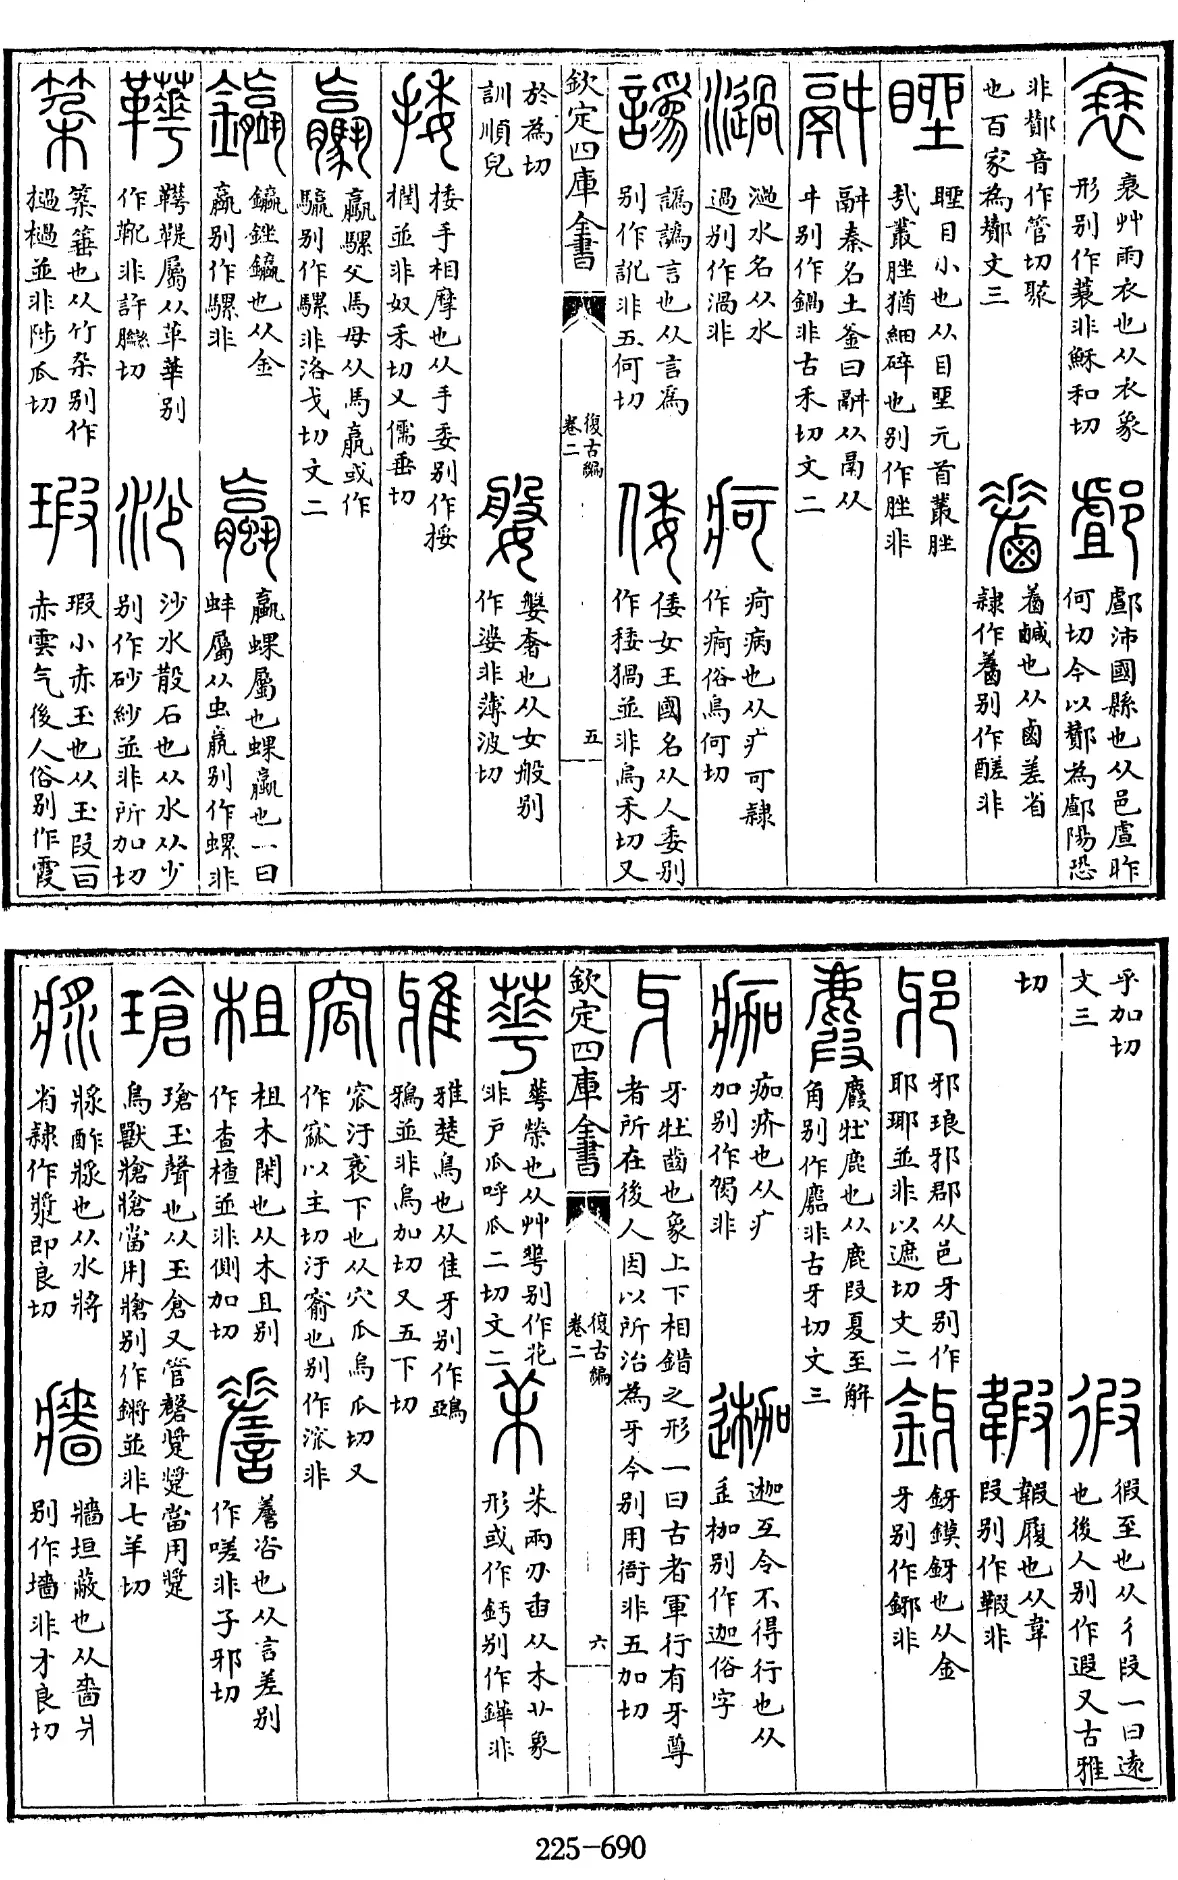 衰
衰艸雨衣也从衣象
形别作蓑非穌和切
䣜
䣜沛國縣也从邑虘昨
何切今以酇為䣜陽恐
非酇音作管切聚
也百家為酇文三
鹹也从鹵差省
隷作鹺别作醝非
睉
睉目小也从目坐元首叢脞
哉叢脞猶細碎也别作脞非
秦名土釜曰䰙从鬲从
别作鍋非古禾切文二
濄
濄水名从水
過别作渦非
疴
疴病也从疒可隷
作痾俗烏何切
譌
譌譌言也从言為
别作訛非五何切
倭
倭女王國名从人委别
作踒猧並非烏禾切又
欽定四庫全書
復古編
卷二
五
於為切
訓順皃
媻
媻奢也从女般别
作婆非薄波切
捼
捼手相摩也从手委别作挼
撋並非奴禾切又儒垂切
驘
驘騾父馬母从馬𦝠或作
驘别作騾非洛戈切文二
鑹銼鑹也从金
羸别作騾非
蠃
蠃螺屬也螺蠃也一曰
蚌屬从虫𦝠别作螺非
鞾
鞾鞮屬从革華别
作靴非許䏢切
築
築箠也从竹朶别作
檛撾並非陟瓜切
沙
沙水散石也从水从少
别作砂紗並非所加切
瑕
瑕小赤玉也从玉叚一曰
赤雲气後人俗别作霞
乎加切
文三
徦
徦至也从彳叚一曰遠
也後人别作遐又古雅
切
䪗
䪗履也从韋
叚别作鞎非
邪
邪琅邪郡从邑牙别作
耶瑘並非以遮切文二
釾
釾鏌釾也从金
牙别作鋣非
麚
麚牡鹿也从鹿叚夏至解
角别作麠非古牙切文三
痂
痂疥也从疒
加别作𤷇非
迦
迦互令不得行也从
辵枷别作迦俗字
牙
牙牡齒也象上下相錯之形一曰古者軍行有牙尊
者所在後人因以所治為牙今别用衙非五加切
欽定四庫全書
復古編
卷二
六
華
蕚榮也从艸𠌶别作花
非戶瓜呼瓜二切文二
𣎴
𣎴兩刃臿从木丷象
形或作釫别作鏵非
雅
雅楚烏也从隹牙别作鵶
鴉並非烏加切又五下切
窊
窊汙衺下也从穴瓜烏瓜切又
作窳以主切汙窬也别作㳬非
柤
柤木閑也从木且别
作查楂並非側加切
𧪘
𧪘咨也从言差别
作嗟非子邪切
瑲
瑲玉聲也从玉倉又管磬蹡蹡當用蹩
鳥獸牄牄當用牄别作鏘並非七羊切
漿
漿酢漿也从水將
省隷作漿即良切
牆
牆垣蔽也从嗇爿
别作墻非才良切
225-690